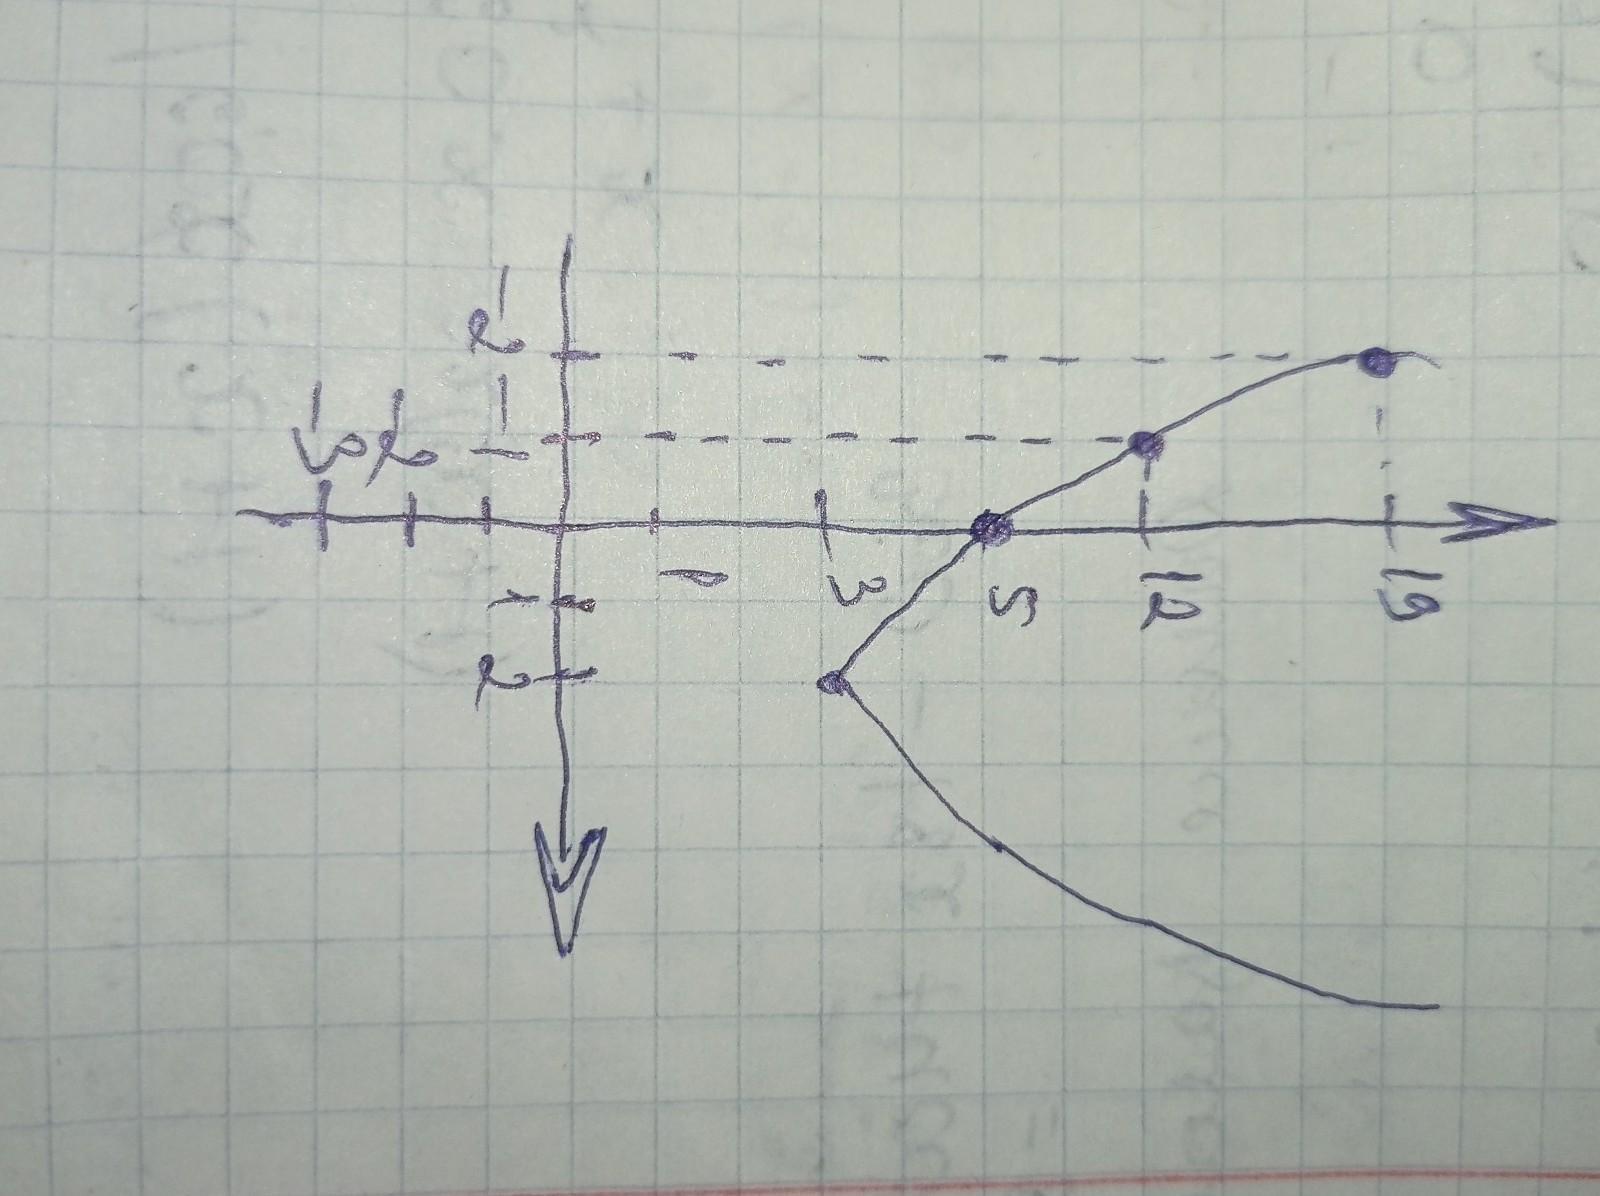 19
12
5
3
1
-2 -1 1 2
-2
-3